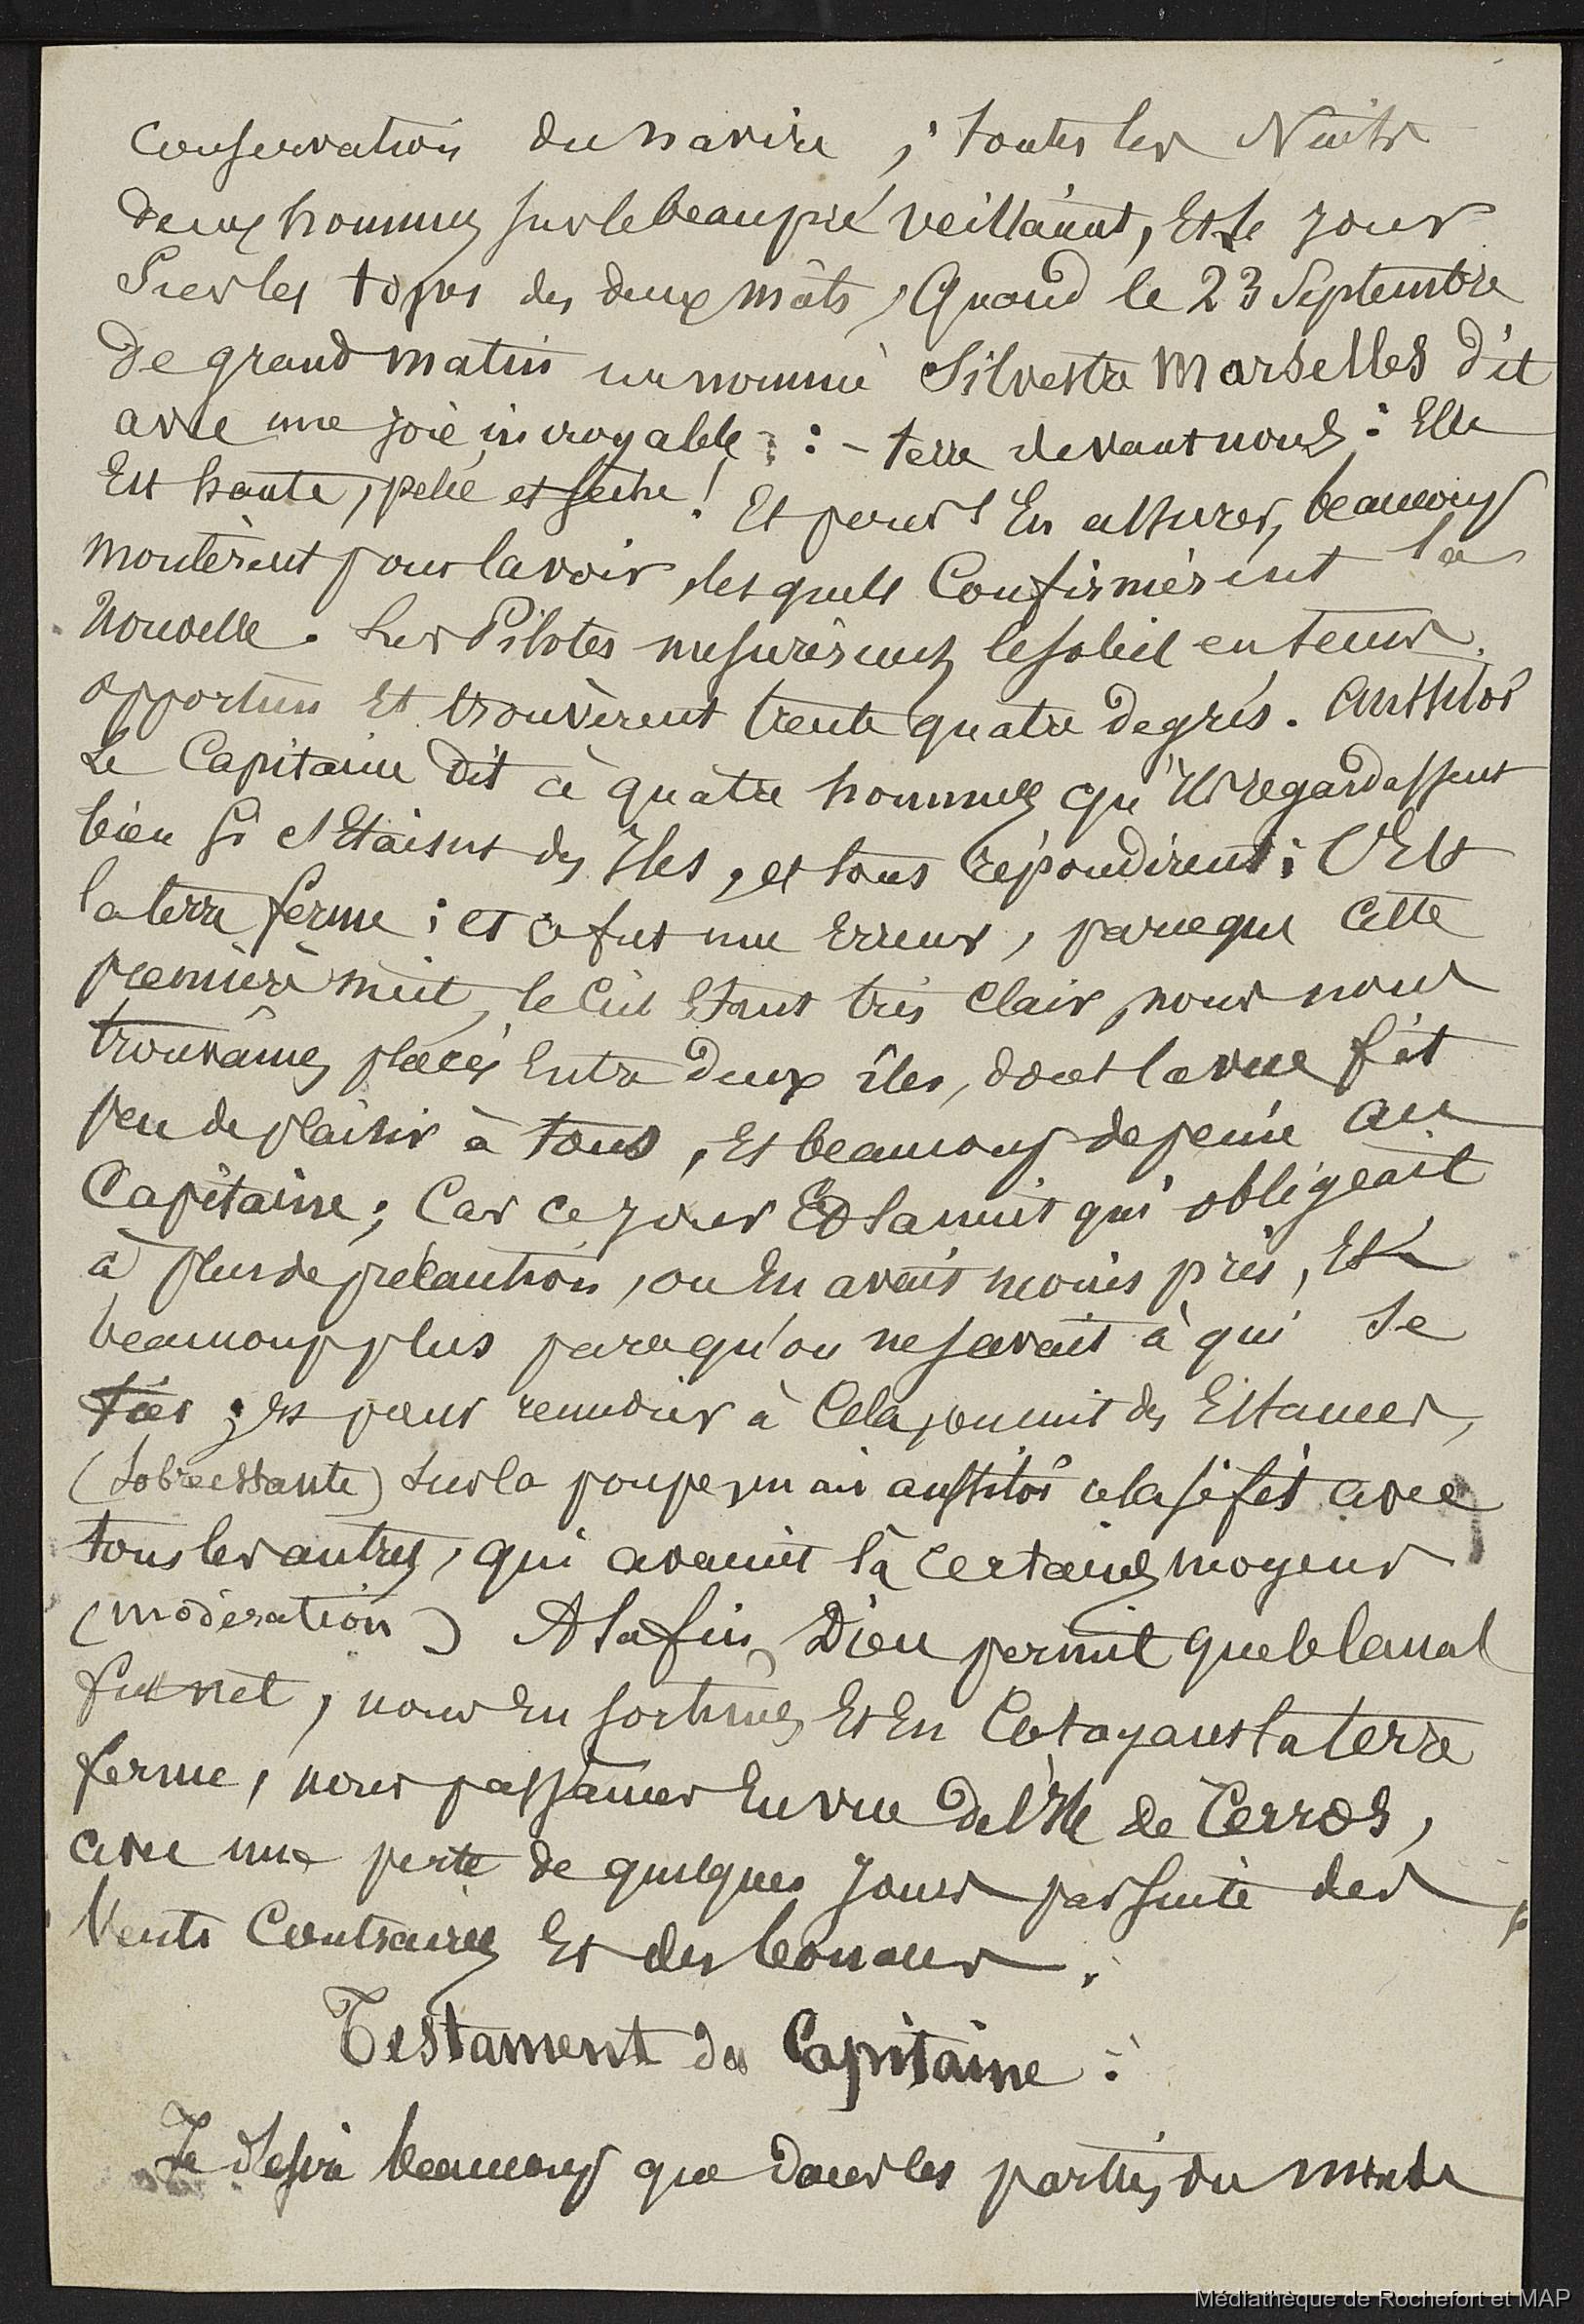 Conservation du navire ; toutes les Nuits
deux hommes sur le beaupré veillaient, Et le jour
Sur les tops des deux mâts, Quand le 23 Septembre
De grand matin un nommé Silvestre Marselles dit
avec une joie incroyable : - terre devant nous : Elle
Est haute, pelée et sèche ! Et pour s'En assurer, beaucoup
montèrent pour la voir, les quels Confirmèrent la
Nouvelle. Les Pilotes mesurèrent le soleil en tems
opportun Et trouvèrent trente quatre degrés. Aussitôt
Le Capitaine dit à quatre hommes qu'ils regardassent
bien si c'Etaient des Iles, et tous répondirent : C'Est
la terre ferme ; et ce fut une Erreur, parceque Cette
première nuit, le Ciel Etant très clair, nous nous
trouvâmes placés Entre Deux îles, dont la vue fit
peu de plaisir à tous, Et beaucoup de peine au
Capitaine ; Car ce jour Et la nuit qui obligeait
à plus de précaution, on En avait moins pris, Et
beaucoup plus parcequ'on ne savait à qui se
fier ; Et pour remédier à Cela, on mit des Estances,
(Sobreestante) sur la poupe, mais aussitôt cela se fit avec
tous les autres, qui avaient là certains moyens
(modération) A la fin, Dieu permit que le Canal
fut net, nous En sortimes Et En Cotoyant la terre
ferme, nous passames En vue de l'Ile de Cerros,
avec une perte de quelques jours par suite des
Vents Contraires Et des bonaces.
Testament du Capitaine :
Je désire beaucoup que dans les parties du monde
Médiathèque de Rochefort et MAP